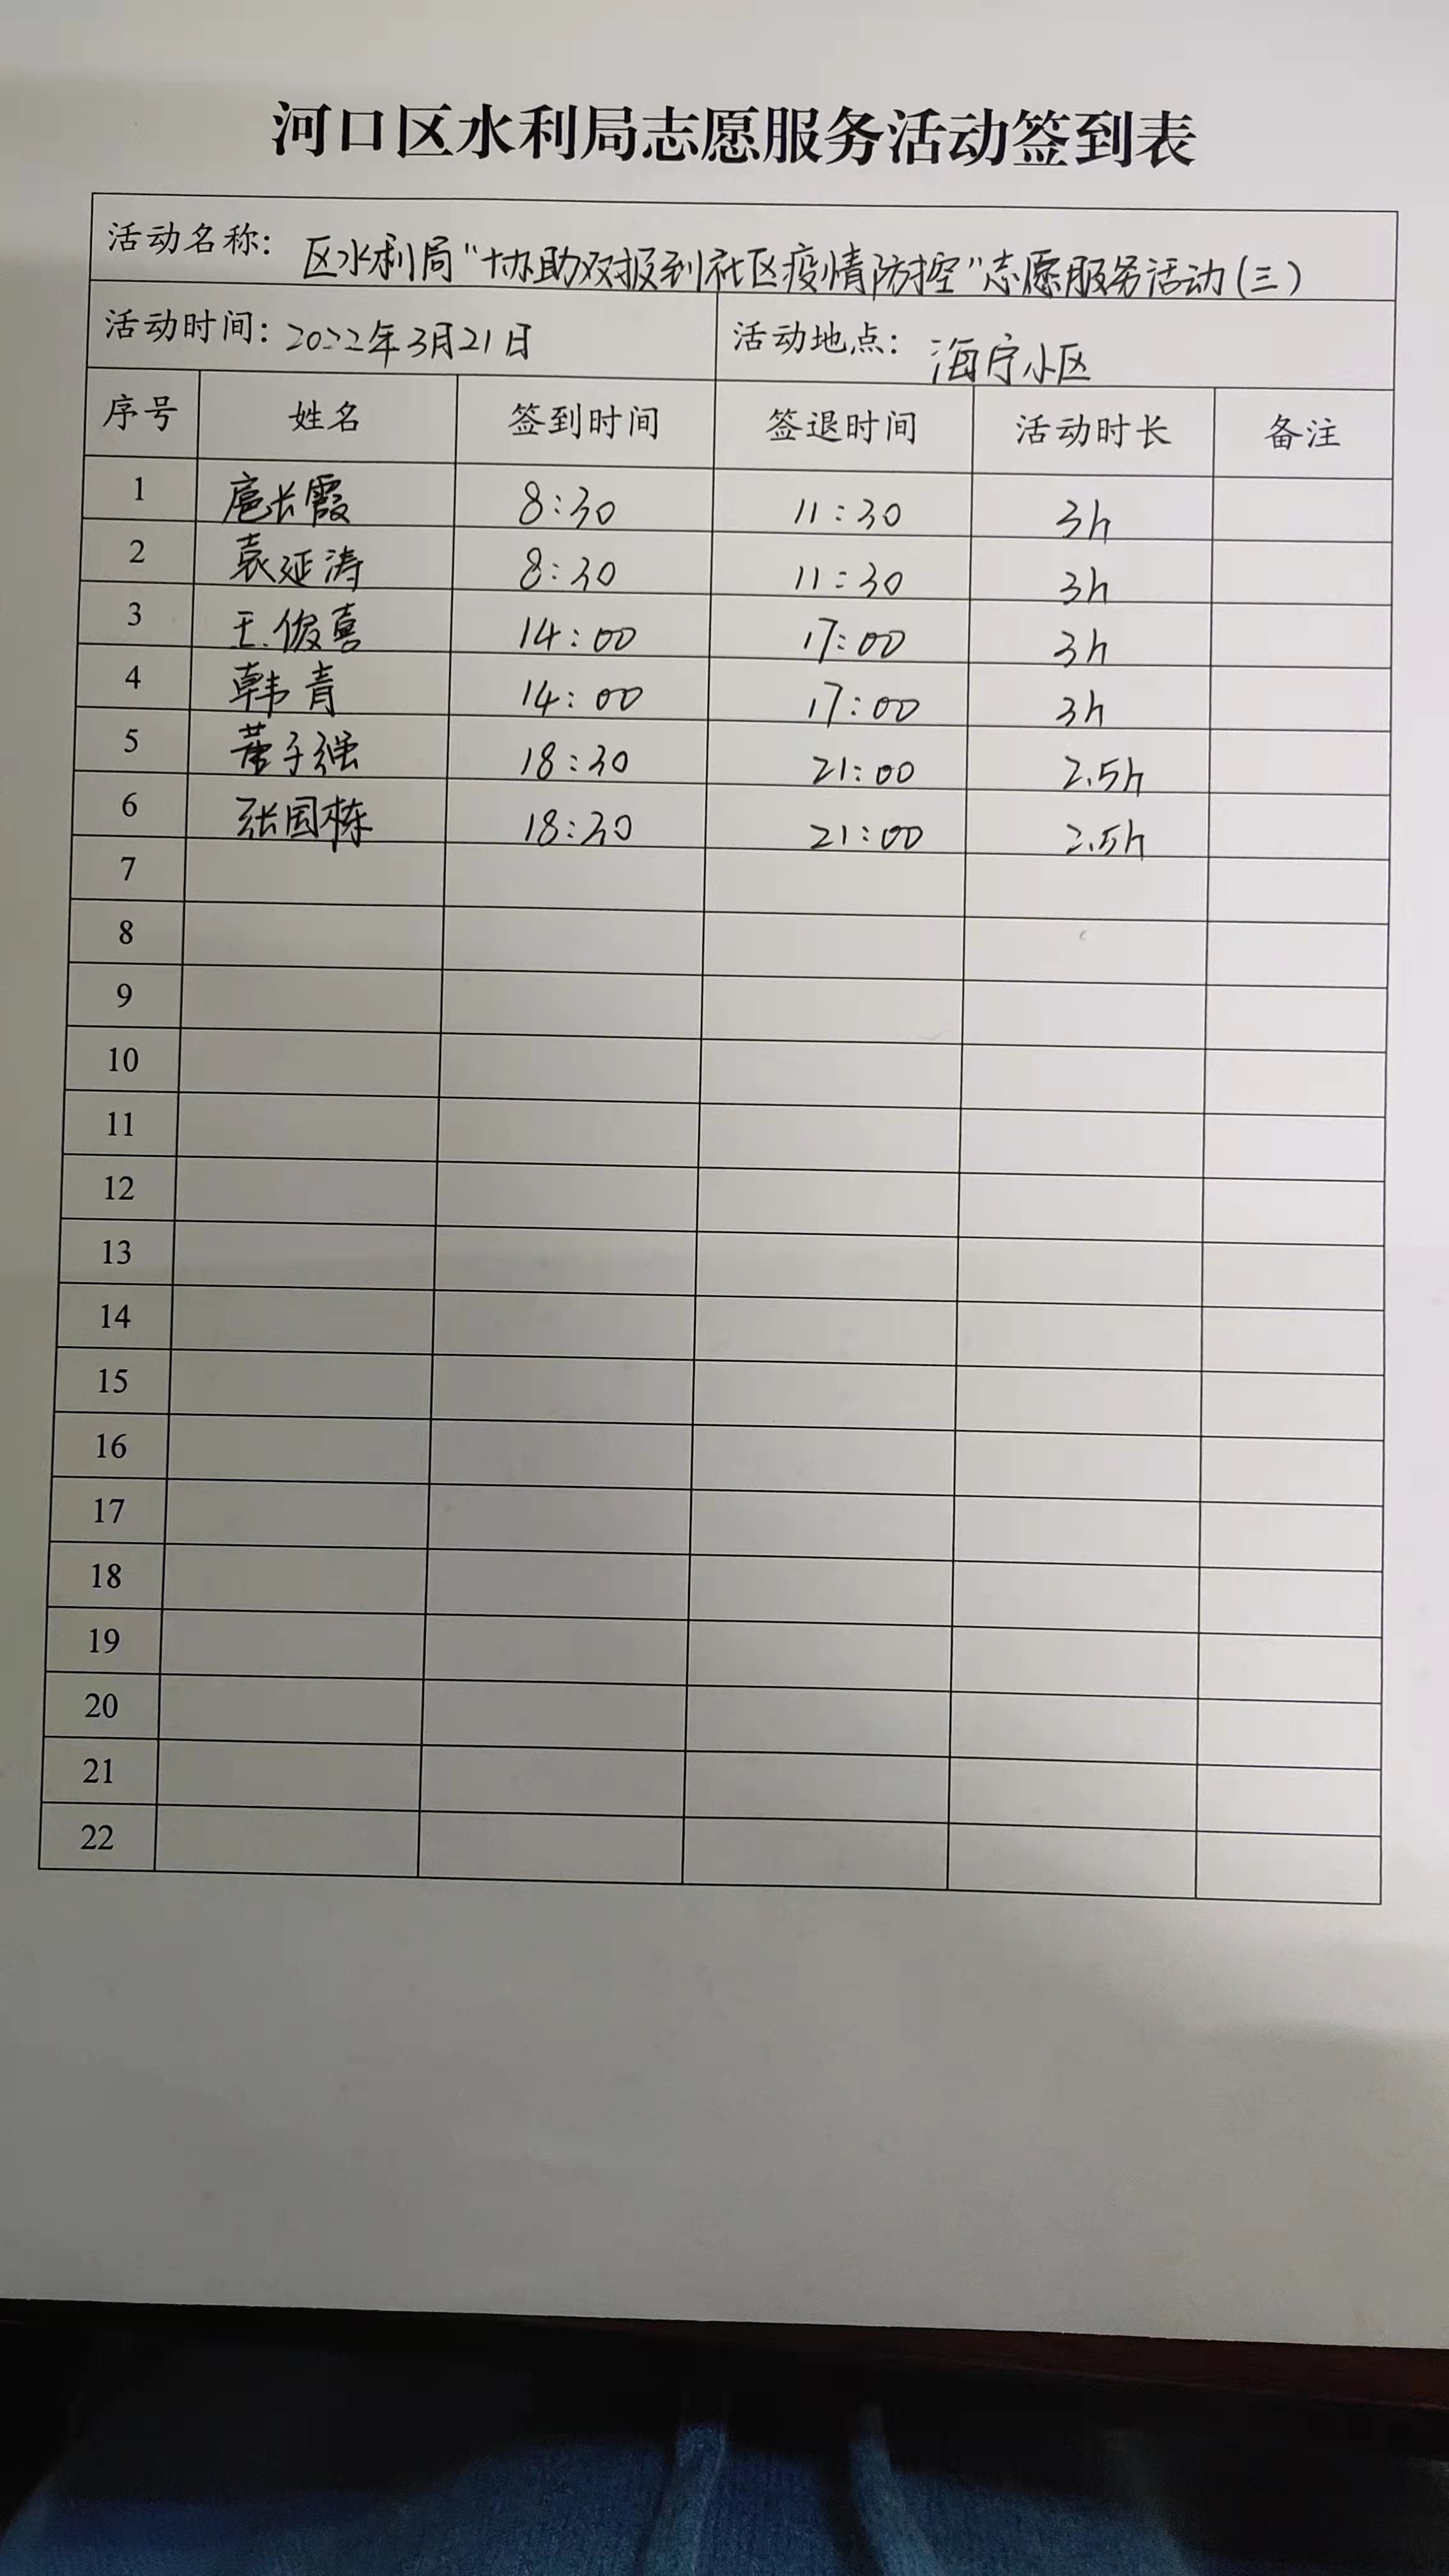 河口区水利局志愿服务活动签到表
活动名称: 区水利局“协助双报到社区疫情防控”志愿服务活动(三)
活动时间: 2022年3月21日 活动地点: 海宁小区
序号 姓名 签到时间 签退时间 活动时长 备注
1 扈长霞 8:30 11:30 3h
2 袁延涛 8:30 11:30 3h
3 王俊喜 14:00 17:00 3h
4 韩青 14:00 17:00 3h
5 董子强 18:30 21:00 2.5h
6 张国栋 18:30 21:00 2.5h
7
8
9
10
11
12
13
14
15
16
17
18
19
20
21
22